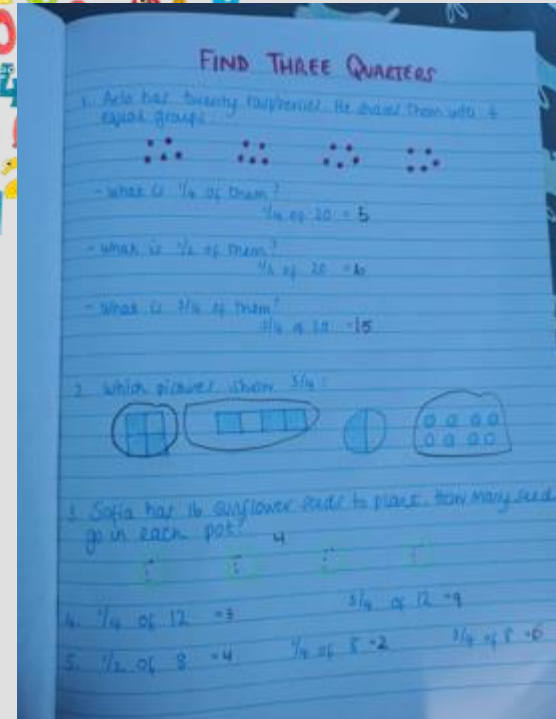 FIND THREE QUARTERS
1. Arlo has twenty raspberries. He shares them into 4
equal groups.
- What is 1/4 of them?
1/4 of 20 = 5
- What is 1/2 of them?
1/2 of 20 =
- What is 3/4 of them?
3/4 of 20 = 15
2. Which pictures show 3/4?
3. Sofia has 16 sunflower seeds to plant. How many seed
go in each pot?
4
4. 1/4 of 12 = 3 3/4 of 12 = 9
5. 1/2 of 8 = 4 1/4 of 8 = 2 3/4 of 8 = 6